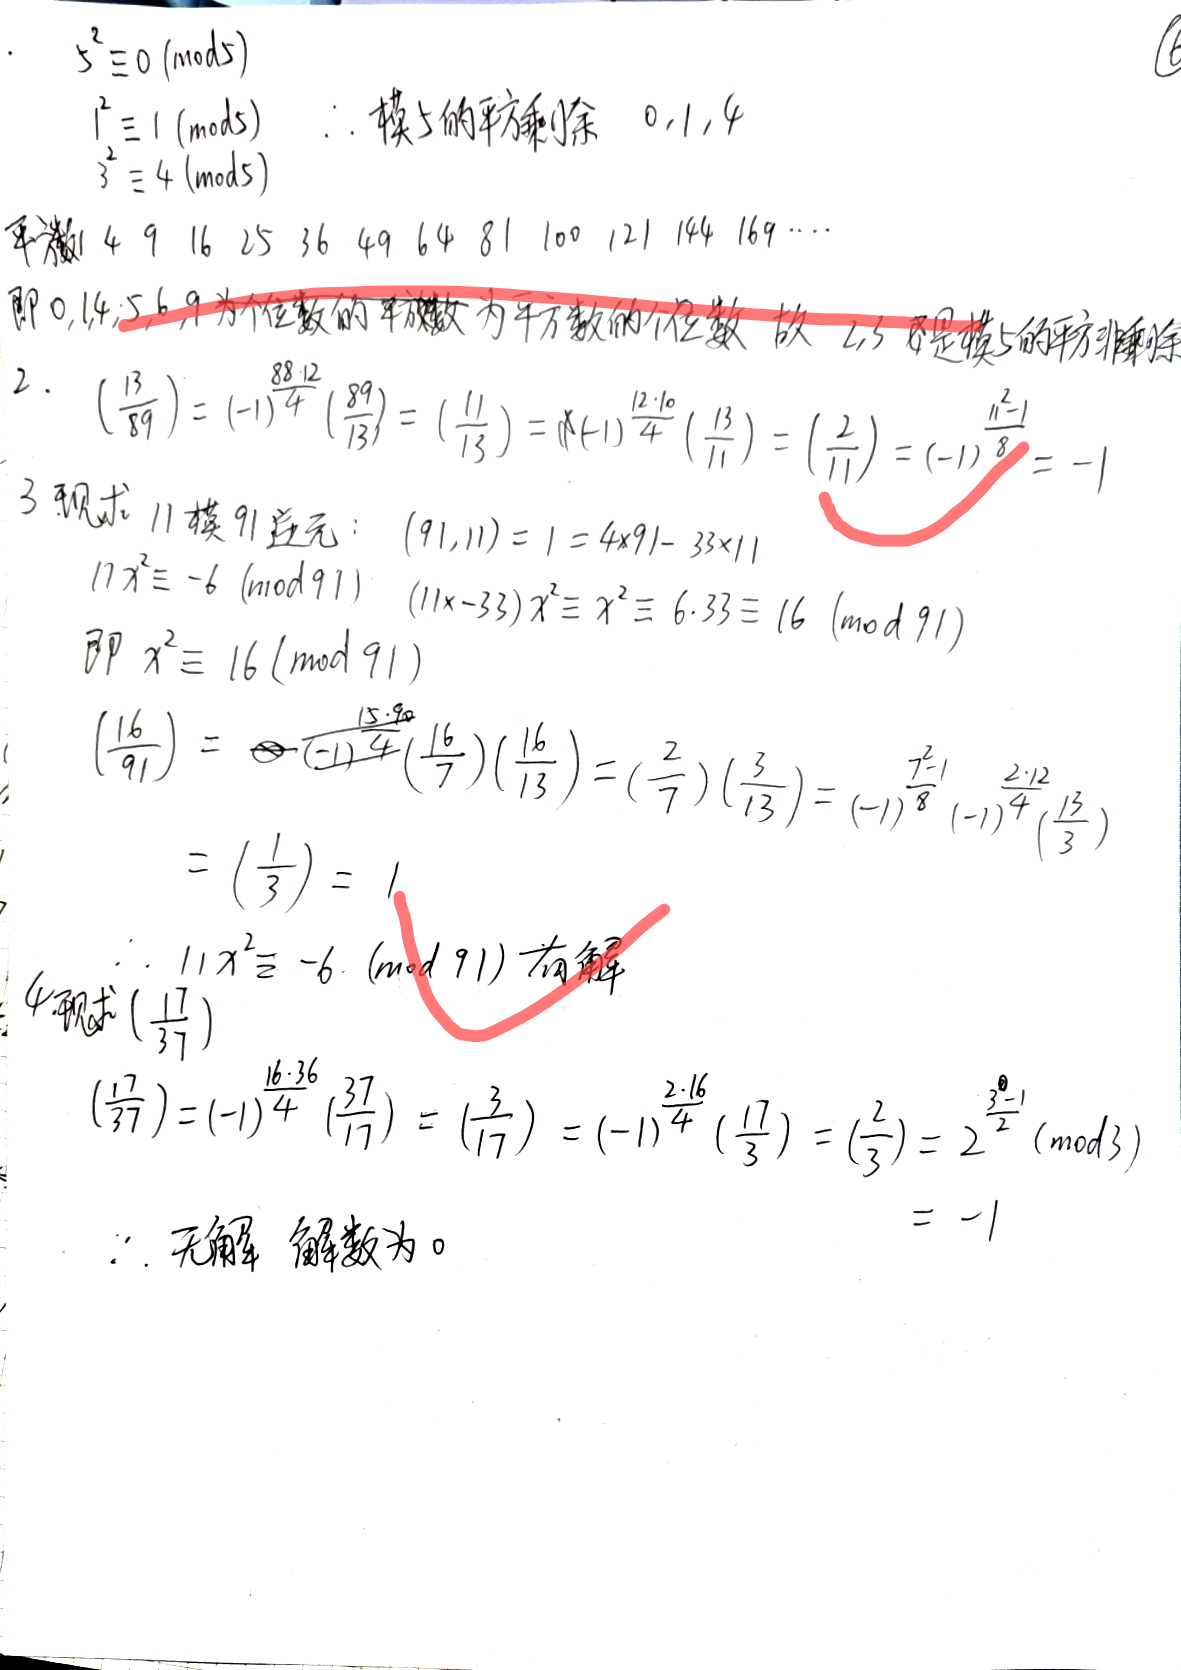 5² ≡ 0 (mod5)
1² ≡ 1 (mod5) ∴ 模5的平方剩余 0,1,4
3² ≡ 4 (mod5)
平方数 1 4 9 16 25 36 49 64 81 100 121 144 169 ····
即 0,1,4,5,6,9 为个位数的平方数为平方数的个位数 故 2,3 是模5的平方非剩余
2. (13/89) = (-1)^(88·12/4) (89/13) = (11/13) = (-1)^(12·10/4) (13/11) = (2/11) = (-1)^((11²-1)/8) = -1
3 现求 11模91逆元: (91,11) = 1 = 4×91 - 33×11
11x² ≡ -6 (mod 91) (11×-33)x² ≡ x² ≡ 6·33 ≡ 16 (mod 91)
即 x² ≡ 16 (mod 91)
(16/91) = (-1)^(15·90/4) (16/7)(16/13) = (2/7)(3/13) = (-1)^((7²-1)/8) (-1)^(2·12/4) (13/3)
= (1/3) = 1
∴ 11x² ≡ -6 (mod 91) 有解
4 现求 (17/37)
(17/37) = (-1)^(16·36/4) (37/17) = (3/17) = (-1)^(2·16/4) (17/3) = (2/3) = 2^((3-1)/2) (mod3)
= -1
∴ 无解 解数为0